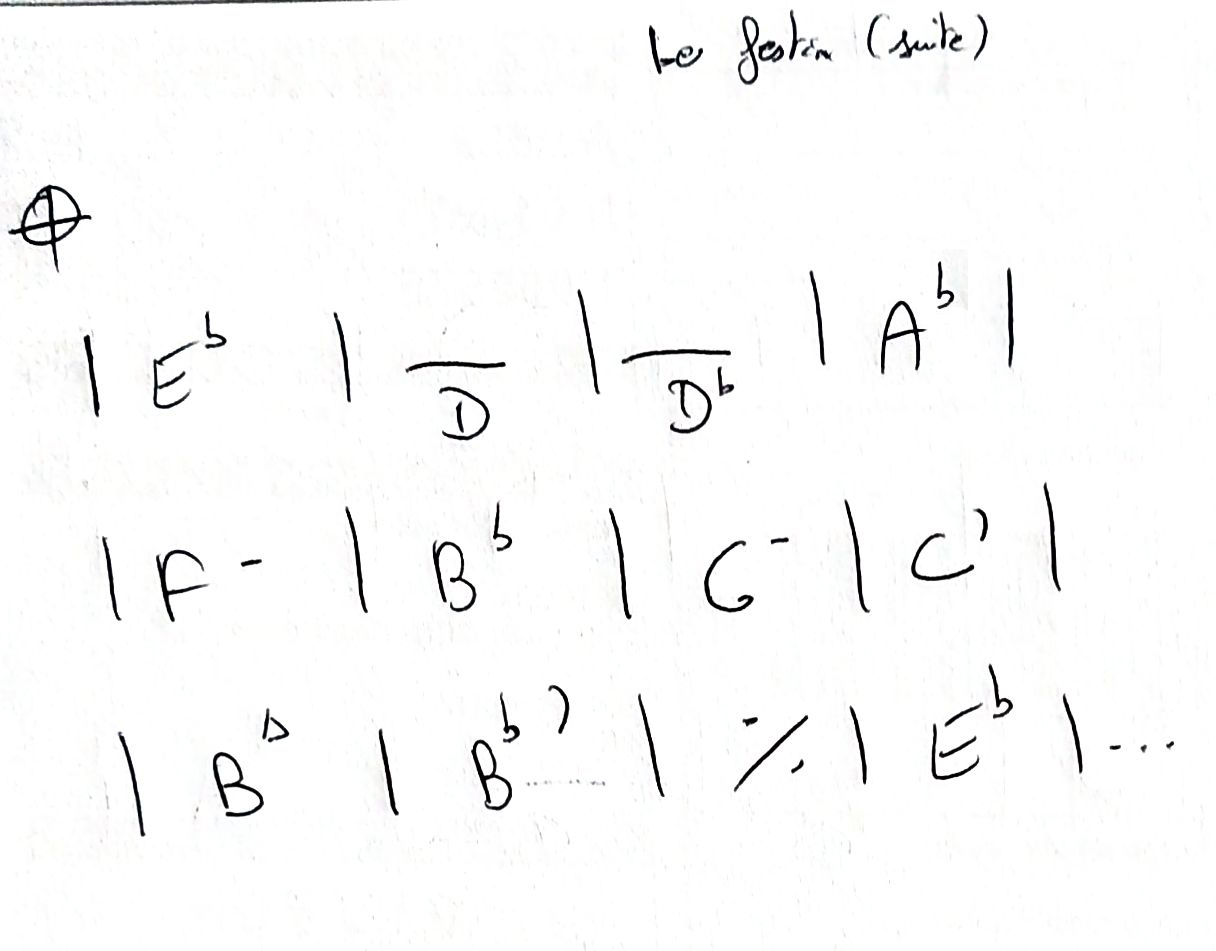 Le festin (suite)
⊕
| E♭ | /D | /D♭ | A♭ |
| F- | B♭ | G- | C7 |
| BΔ | B♭7 | ٪ | E♭ | ...